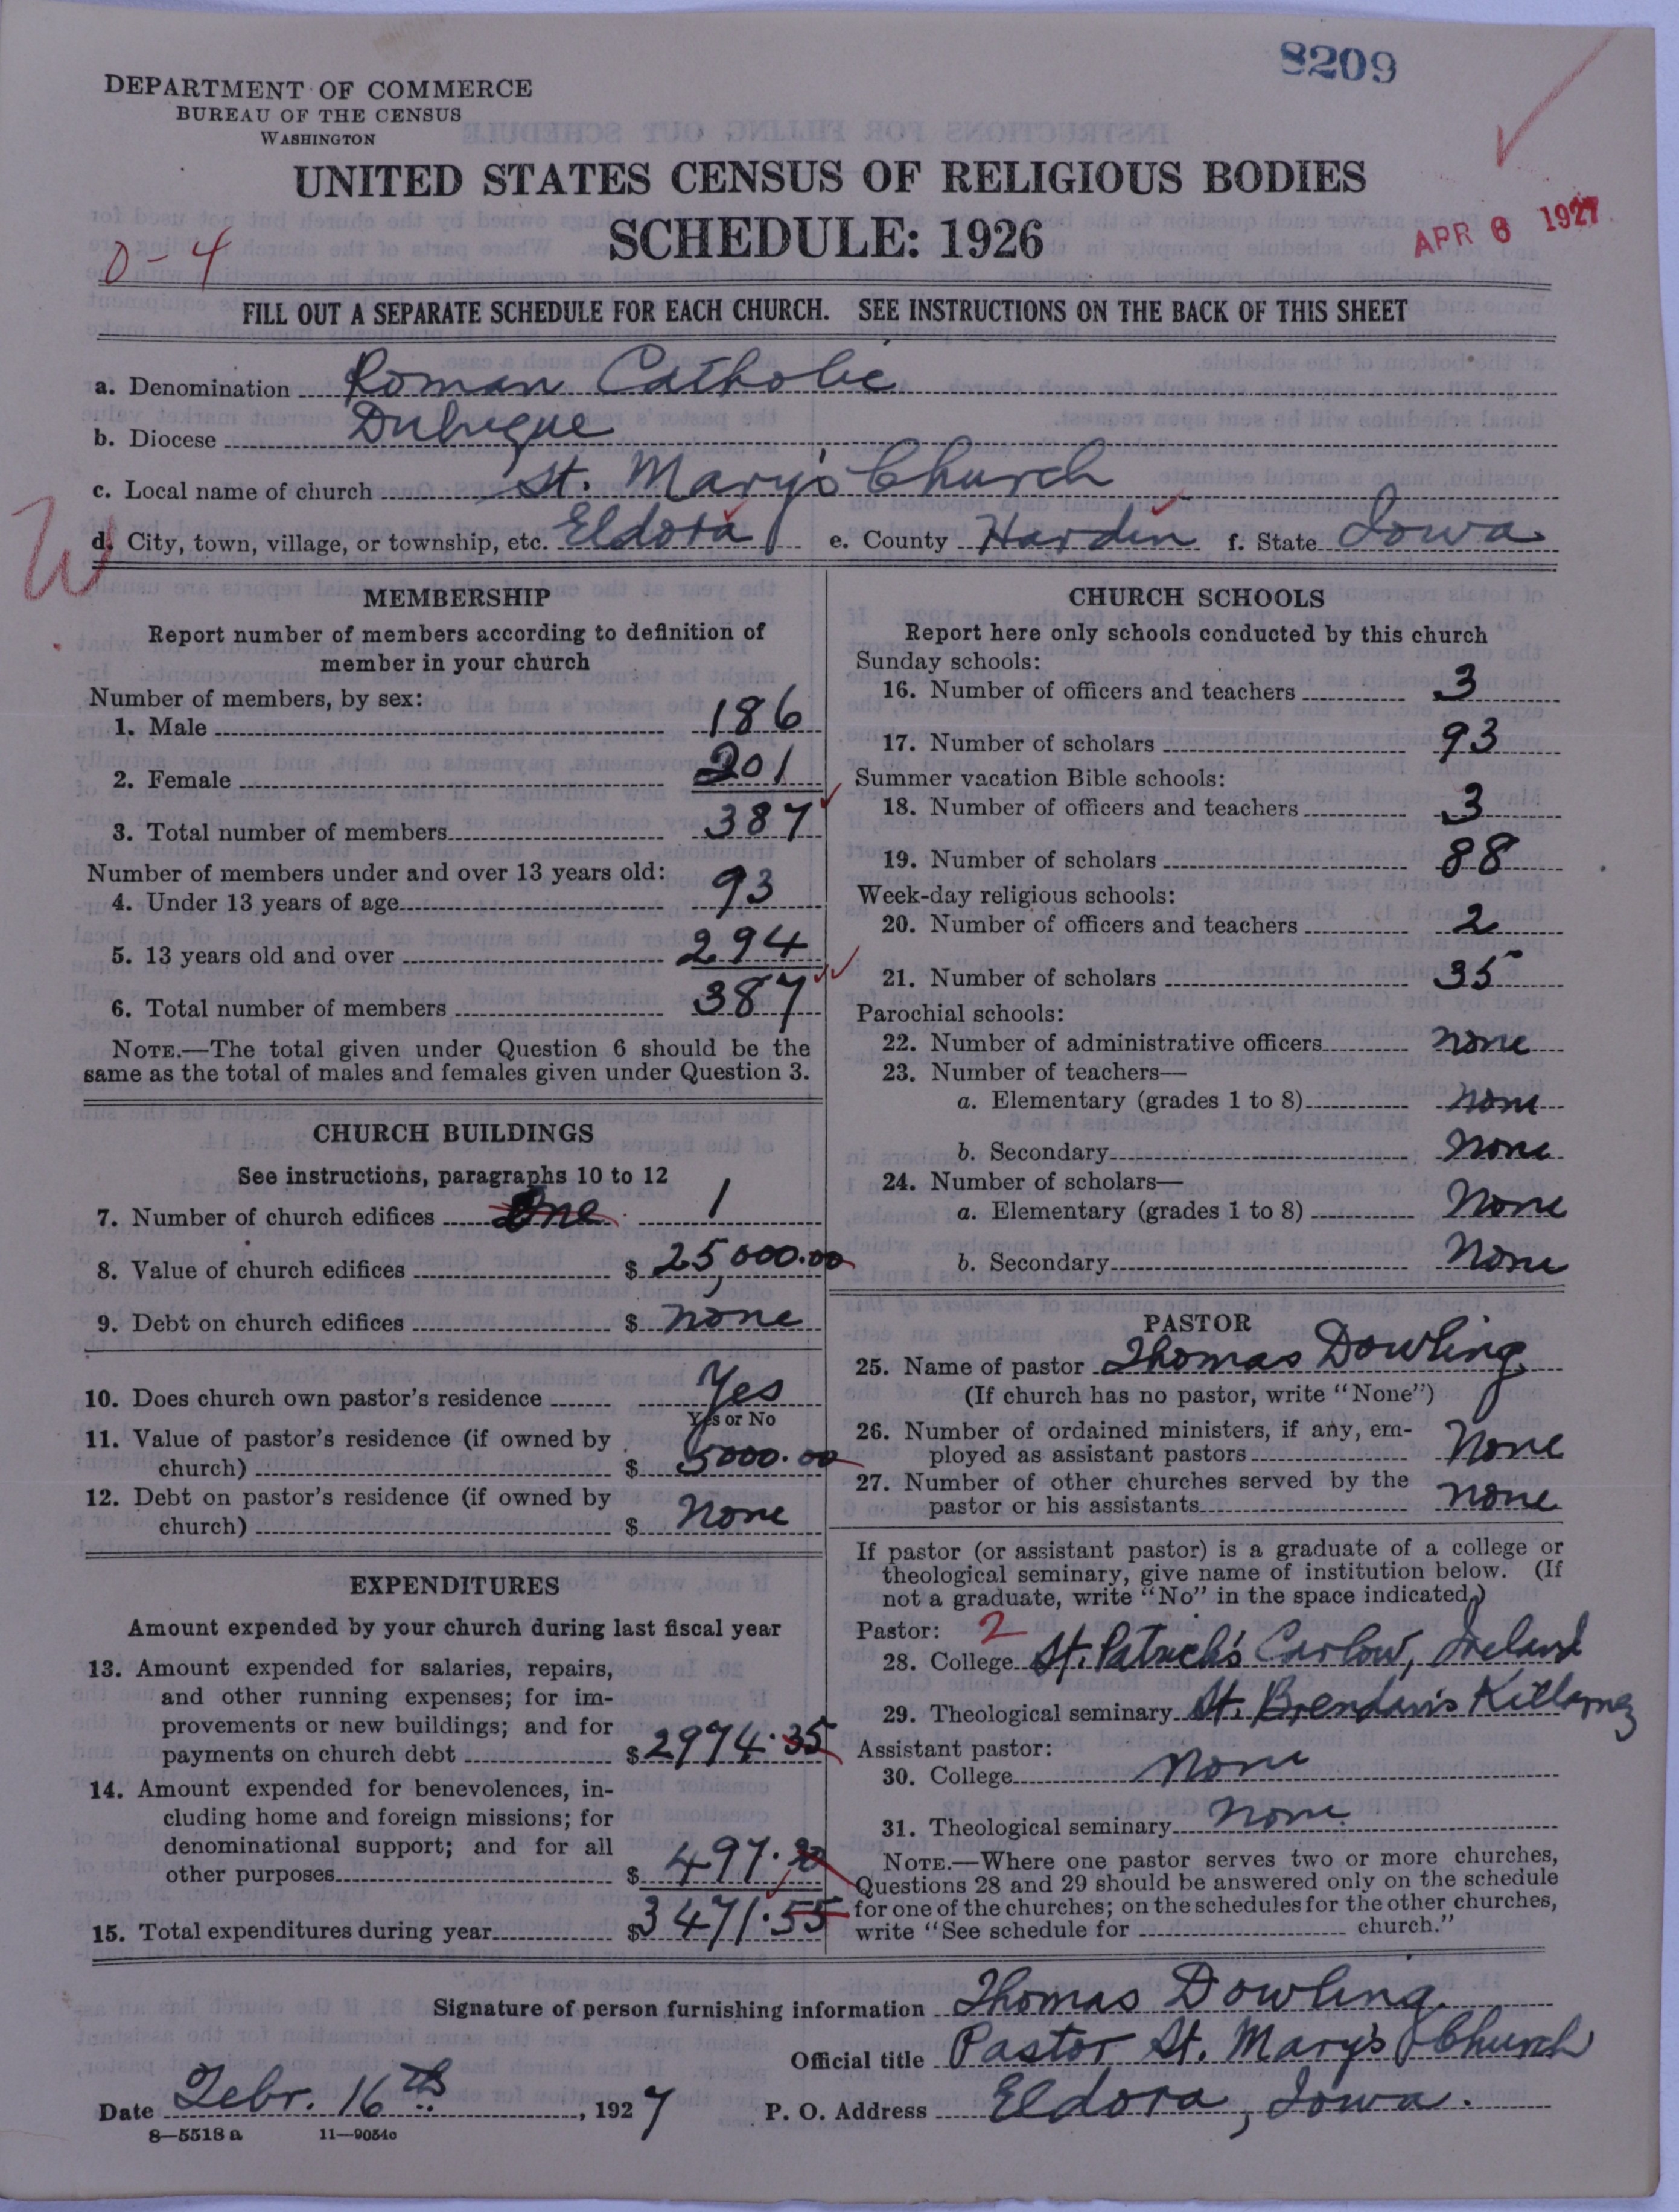 8209
DEPARTMENT OF COMMERCE
BUREAU OF THE CENSUS
WASHINGTON
UNITED STATES CENSUS OF RELIGIOUS BODIES
SCHEDULE: 1926
APR 6 1927
0-4
FILL OUT A SEPARATE SCHEDULE FOR EACH CHURCH. SEE INSTRUCTIONS ON THE BACK OF THIS SHEET
a. Denomination Roman Catholic
b. Diocese Dubuque
c. Local name of church St. Mary's Church
W
d. City, town, village, or township, etc. Eldora e. County Hardin f. State Iowa
MEMBERSHIP
Report number of members according to definition of
member in your church
Number of members, by sex:
1. Male 186
2. Female 201
3. Total number of members 387
Number of members under and over 13 years old:
4. Under 13 years of age 93
5. 13 years old and over 294
6. Total number of members 387
NOTE.—The total given under Question 6 should be the
same as the total of males and females given under Question 3.
CHURCH BUILDINGS
See instructions, paragraphs 10 to 12
7. Number of church edifices One 1
8. Value of church edifices $ 25,000.00
9. Debt on church edifices $ none
10. Does church own pastor's residence Yes
Yes or No
11. Value of pastor's residence (if owned by
church) $ 5000.00
12. Debt on pastor's residence (if owned by
church) $ None
EXPENDITURES
Amount expended by your church during last fiscal year
13. Amount expended for salaries, repairs,
and other running expenses; for im-
provements or new buildings; and for
payments on church debt $ 2974.35
14. Amount expended for benevolences, in-
cluding home and foreign missions; for
denominational support; and for all
other purposes $ 497.20
15. Total expenditures during year $ 3471.55
CHURCH SCHOOLS
Report here only schools conducted by this church
Sunday schools:
16. Number of officers and teachers 3
17. Number of scholars 93
Summer vacation Bible schools:
18. Number of officers and teachers 3
19. Number of scholars 88
Week-day religious schools:
20. Number of officers and teachers 2
21. Number of scholars 35
Parochial schools:
22. Number of administrative officers none
23. Number of teachers—
a. Elementary (grades 1 to 8) none
b. Secondary none
24. Number of scholars—
a. Elementary (grades 1 to 8) None
b. Secondary None
PASTOR
25. Name of pastor Thomas Dowling
(If church has no pastor, write "None")
26. Number of ordained ministers, if any, em-
ployed as assistant pastors None
27. Number of other churches served by the
pastor or his assistants none
If pastor (or assistant pastor) is a graduate of a college or
theological seminary, give name of institution below. (If
not a graduate, write "No" in the space indicated.)
Pastor: 2
28. College St. Patrick's Carlow, Ireland
29. Theological seminary St. Brendan's Killarney
Assistant pastor:
30. College None
31. Theological seminary None
NOTE.—Where one pastor serves two or more churches,
Questions 28 and 29 should be answered only on the schedule
for one of the churches; on the schedules for the other churches,
write "See schedule for church."
Signature of person furnishing information Thomas Dowling.
Official title Pastor St. Mary's Church
Date Febr. 16th, 1927 P. O. Address Eldora, Iowa.
8—5518 a 11—9054c